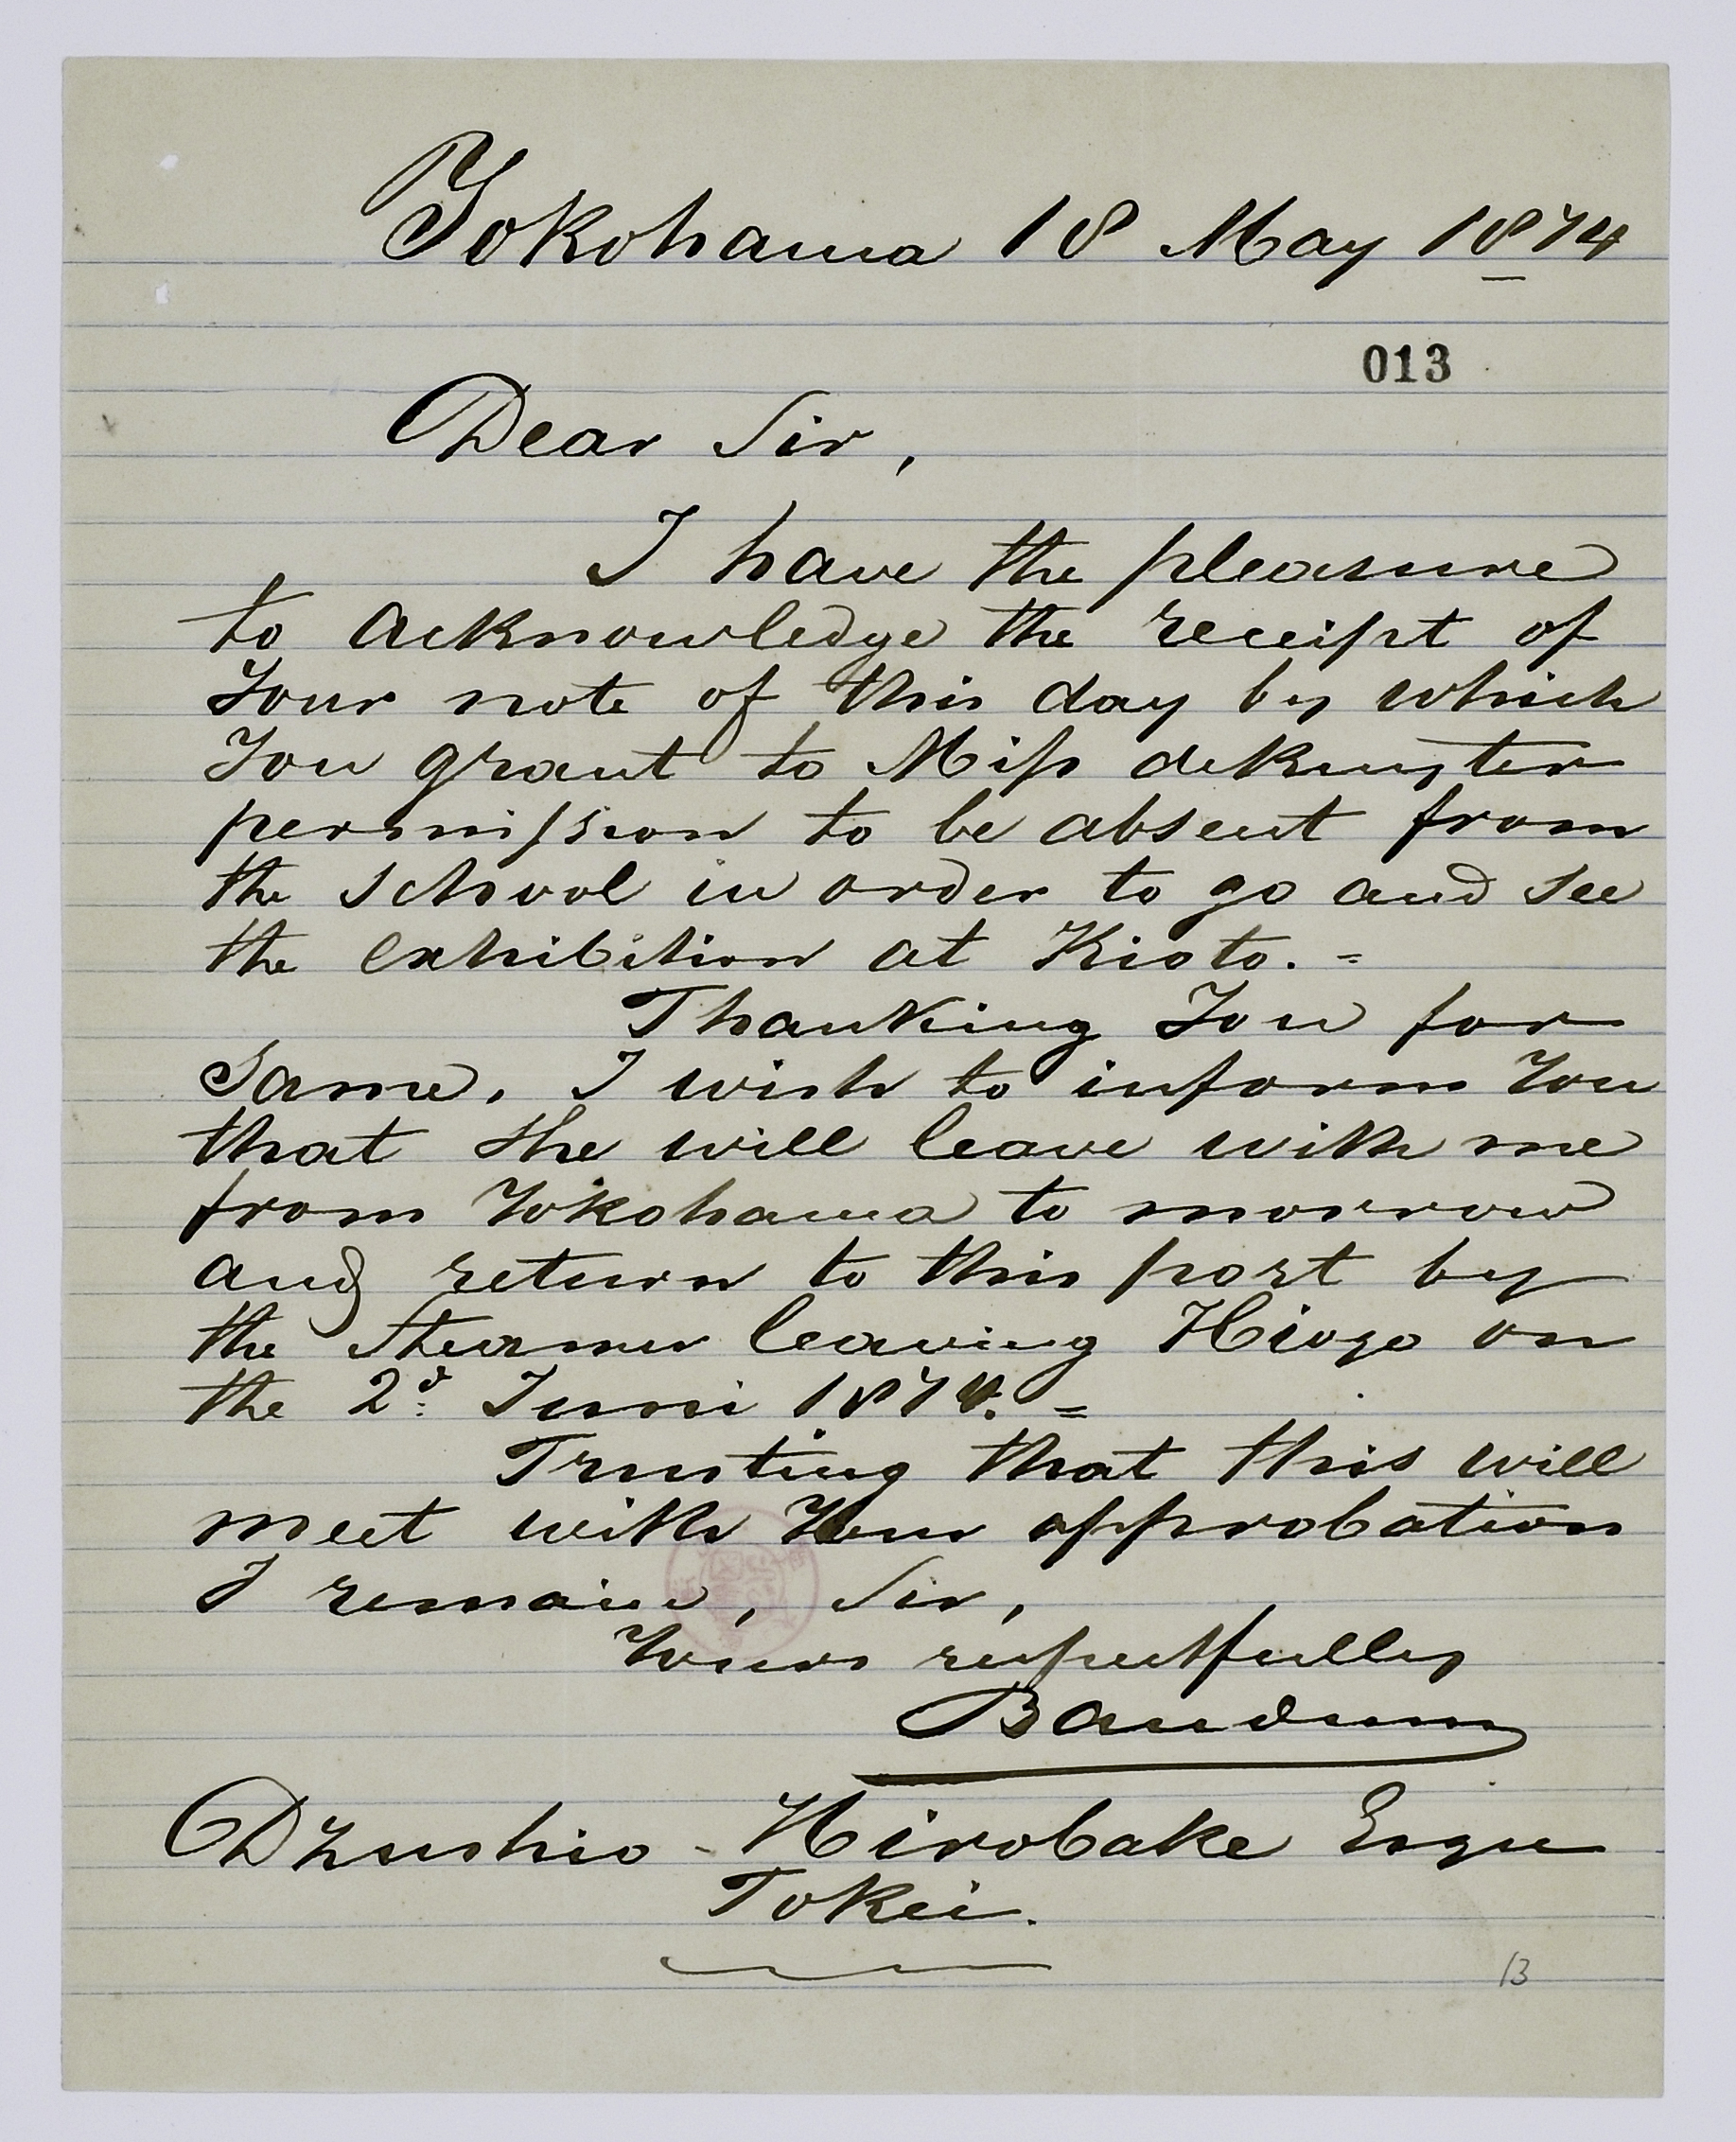 Yokohama 18 May 1874
013
Dear Sir,
I have the pleasure
to acknowledge the receipt of
Your note of this day by which
You grant to Miss deKuyster
permission to be absent from
the school in order to go and see
the exhibition at Kioto. =
Thanking You for
same, I wish to inform You
that she will leave with me
from Yokohama to morrow
and return to this port by
the steamer leaving Hiogo on
the 2d: Juni 1874. =
Trusting that this will
meet with Your approbation
I remain, Sir,
Yours respectfully
Bauduin
Dzushio - Hirobake Esqre
Tokei.
13